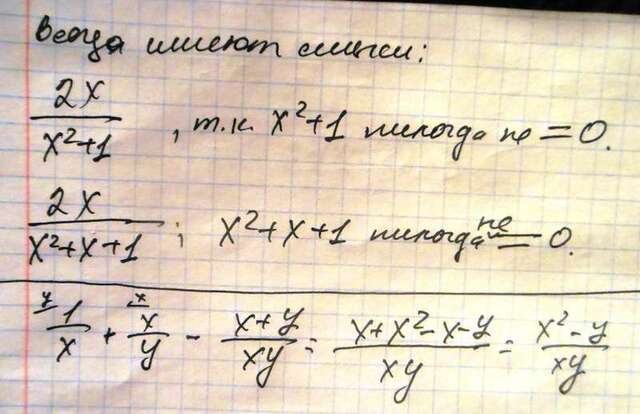 Всегда имеют смысл:
2x/(x²+1), т.к. x²+1 никогда не = 0.
2x/(x²+x+1); x²+x+1 никогда не = 0.
ʸ⁄ 1/x + ˣ⁄ x/y - (x+y)/(xy) = (x+x²-x-y)/(xy) = (x²-y)/(xy)